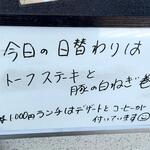 今日の日替わりは
トーフステーキと
豚の白ねぎ巻
¥1000円ランチはデザートとコーヒーor
付いています☺